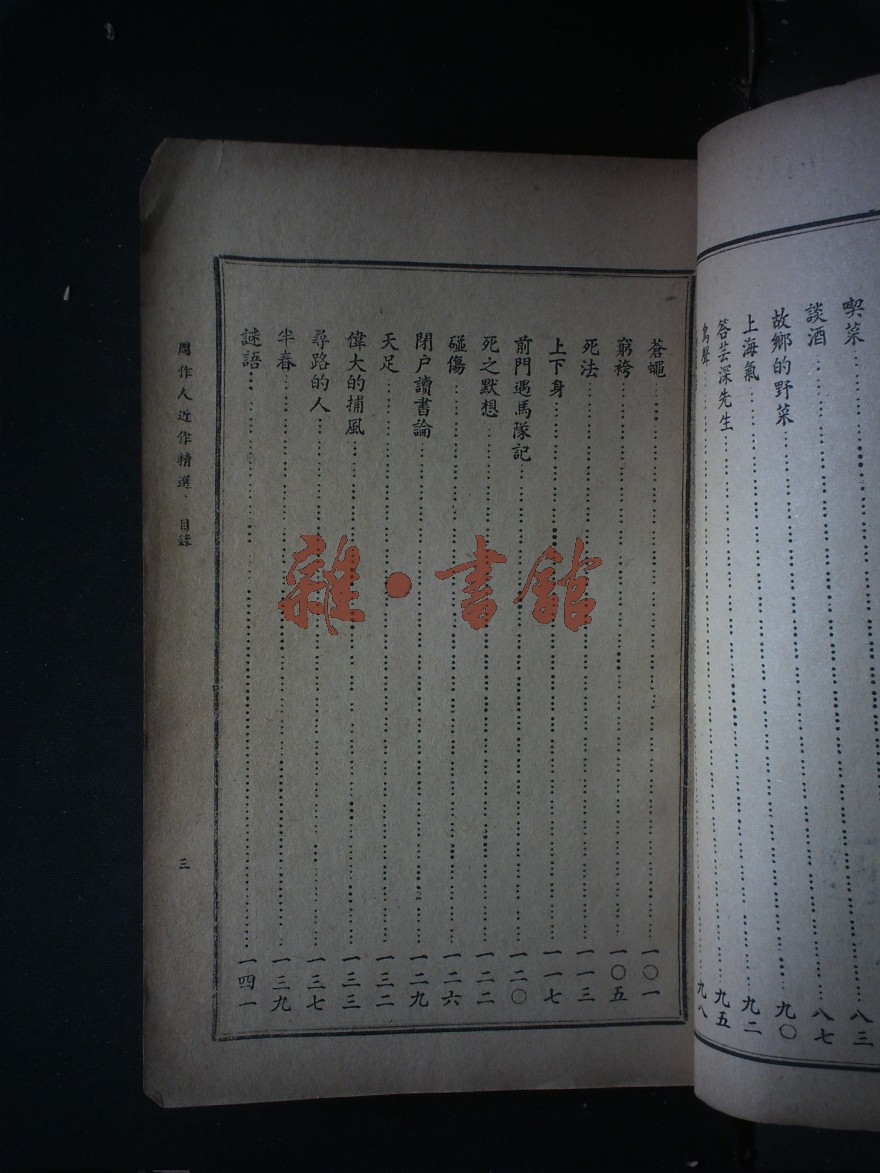 喫菜……八三
談酒……八七
故鄉的野菜……九〇
上海氣……九二
答芸深先生……九五
鳥聲……九八
蒼蠅……一〇一
窮袴……一〇五
死法……一一三
上下身……一一七
前門遇馬隊記……一二〇
死之默想……一二二
碰傷……一二六
閉戶讀書論……一二九
天足……一三二
偉大的捕風……一三三
尋路的人……一三七
半春……一三九
謎語……一四一
周作人近作精選、目錄
三
雜·書館